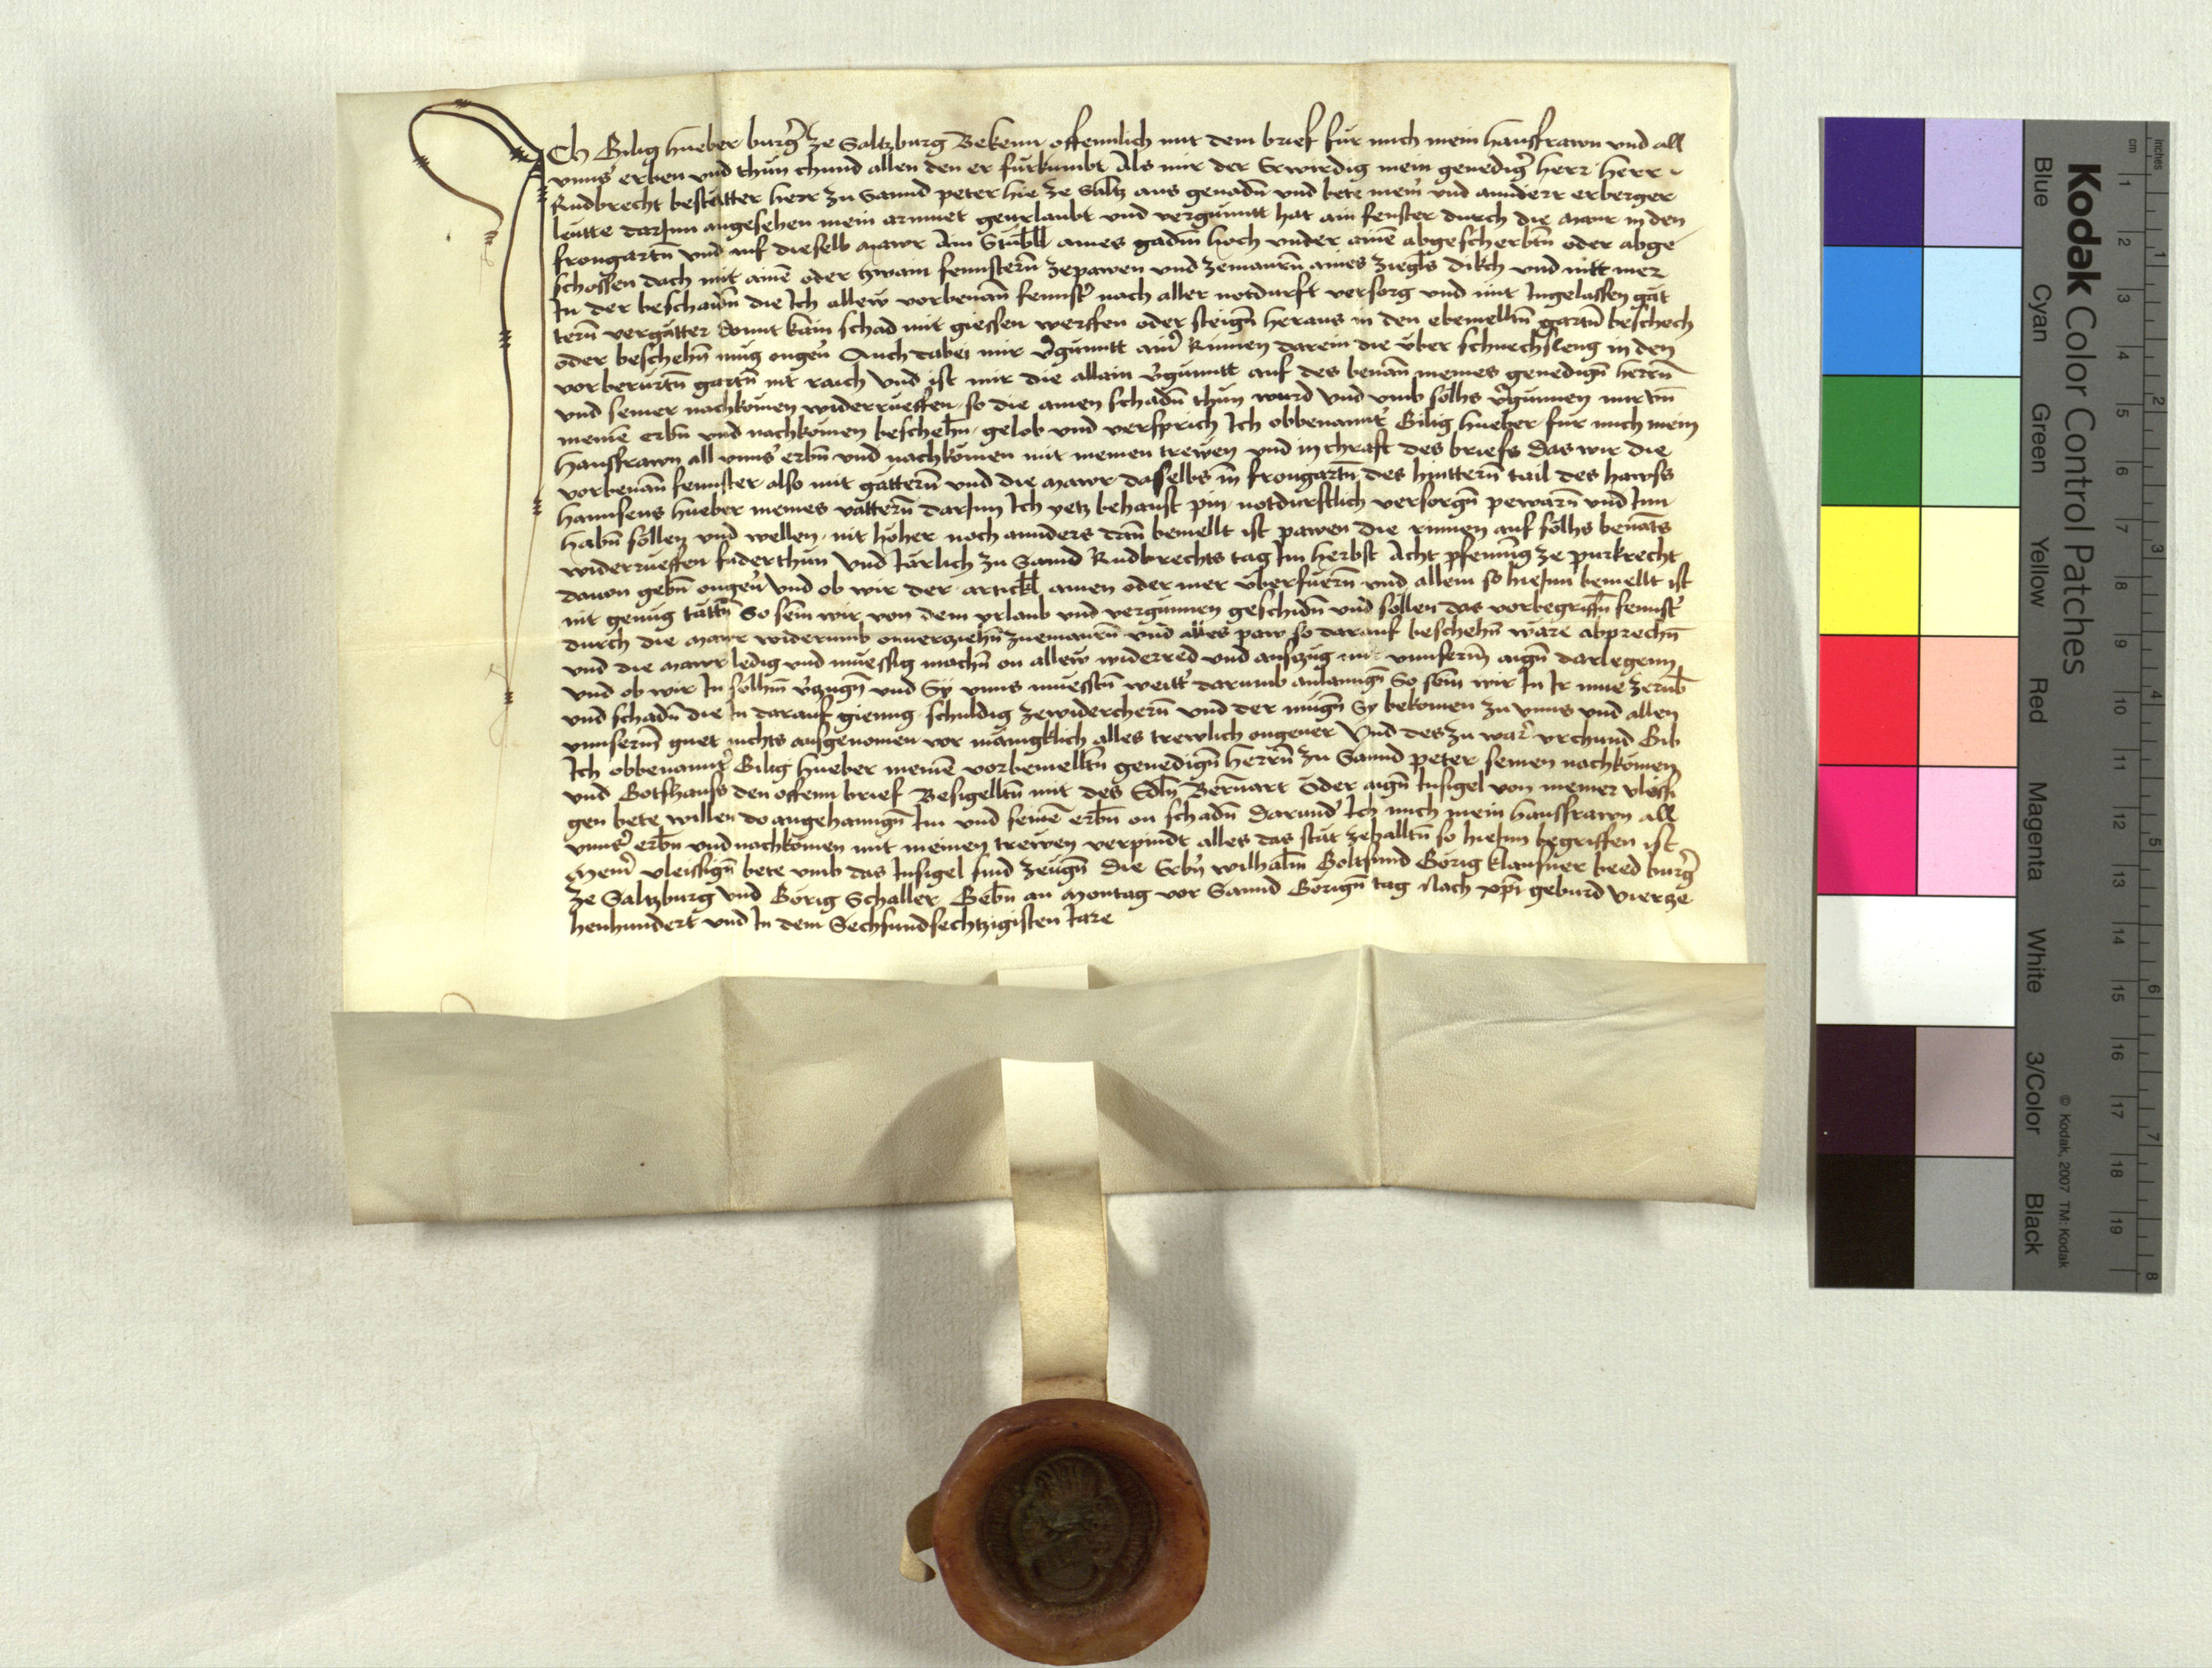 Ich Gilig Hueber burgr̄ ze Saltzburg Bekenn offennlich mit dem brief fur mich mein hausfrawn und all
vnns' erben vnd thun chund allen den er furkumbt Als mir der Erwirdig mein genedigr̄ herr herr
Rudbrecht bestätter herr zu Sannd peter hie ze Saltz aus genadn̄ vnd bete mein' vnd annderr erberger
leutte darInn angesehen mein armuet geurlaubt vnd vergunntt hat ain fenster durch die mawr in den
frongartn̄ vnd auf dieselb mawr Ain Stubl̄l aines gadm̄ hoch vnder ainē abgescherbtn̄ oder abge
schossen dach mit ainē oder zwain fennstern̄ zepawen vnd zemaurn̄ aines ziegls dikch vnd nitt mer
In der beschawn̄ die Ich allew vorbenan̄ fennst' nach aller notdurft versorg vnd mit Ingelassen gät
tern̄ vergätter Damit kain schad mit giessen werffen oder steign̄ heraus in den ebemelltn̄ gartn̄ beschech
oder beschehn̄ mug ongeu' Auch dabei mir v'gunntt ain' Rinnen darein die vber schuechs leng in den
vorberurtn̄ gartn̄ nit raich Vnd ist mir die allain v'gunntt auf des benan̄ meines genedign̄ herrn̄
vnd seiner nachkomen widerrueffen so die ainen schadn̄ thun wurd Vnd vmb solhs v'gunnen mir vn̄
meinē erbn̄ vnd nachkomen beschehn̄ gelob vnd versprich Ich obbenannt' Gilig hueber fur mich mein
hausfrawn all vnns' erbn̄ vnd nachkomen mit meinen trewen vnd in chraft des briefs Das wir die
vorbenan̄ fennster also mit gättern̄ vnd die mawr daselbs in frongartn̄ des hinttern̄ tail des hawss
hannsens hueber meines vättern̄ darInn Ich yetz behaust pin notdurftlich versorgn̄ pewarn̄ vnd Inn
habn̄ sollen vnd wellen nit höher noch annders dan̄ bemellt ist pawen die rinnen auf solhs benants
widerrueffen fuderthun Vnd Iärlich zu Sannd Rudbrechts tag Im herbst Acht pfenning ze purkrecht
dauon gebn̄ ongeu' Vnd ob wir der artickl̄ ainen oder mer vberfuern̄ vnd allem so hieInn bemellt ist
nit genug tättn̄ So sein wir von dem vrlaub vnd vergunnen geschidn̄ vnd sollen das vorbegriffn̄ fennst'
durch die mawr widerumb onuerziehn̄ zuemaurn̄ vnd alles paw so darauf beschehn̄ wäre abprechn̄
vnd die mawr ledig vnd muessig machn̄ on allew widerred vnd auszug mit vnnserm̄ aign̄ darlegenn
Vnd ob wir In solhm̄ v'zugn̄ vnd Sy vnns muesstn̄ weitt' darumb anlanngn̄ So sein wir In Ir mue zerub̄
vnd schadn̄ die In darauf gienng schuldig zewiderchern̄ vnd der mugn̄ Sy bekomen zu vnns vnd allen
vnnserm̄ guet nichts ausgenomen vor mänigklich alles trewlich ongeuer Vnd des zu war' vrchund Gib
Ich obbenannt' Gilig hueber meinē vorbemelltn̄ genedign̄ herrn̄ zu Sannd peter seinen nachkomen
vnd Gotshauss den offenn brief Besigelltn̄ mit des Edln̄ Bernart Öder aign̄ Insigel von meiner vleissi
gen bete willen do angehanngn̄ Im vnd seinē erbn̄ on schadn̄ Darund' Ich mich mein hausfrawn all
vnns' erbn̄ vnd nachkomen mit meinen trewen verpindt alles das stät zehalltn̄ so hieInn begriffen ist
Mein' vleissign̄ bete vmb das Insigel sind zeugn̄ Die Erbn̄ wilhalm̄ Goltsund Görig klausner beed burgr̄
ze Saltzburg Vnd Görig Schaller Gebn̄ an Montag vor Sannd Görign̄ tag Nach xp̄i geburd vierze
henhundert vnd In dem Sechsundsechtzigisten Iare
Kodak Color Control Patches
Blue Cyan Green Yellow Red Magenta White 3/Color Black
© Kodak, 2007 TM: Kodak
cm 1 2 3 4 5 6 7 8 9 10 11 12 13 14 15 16 17 18 19
inches 1 2 3 4 5 6 7 8